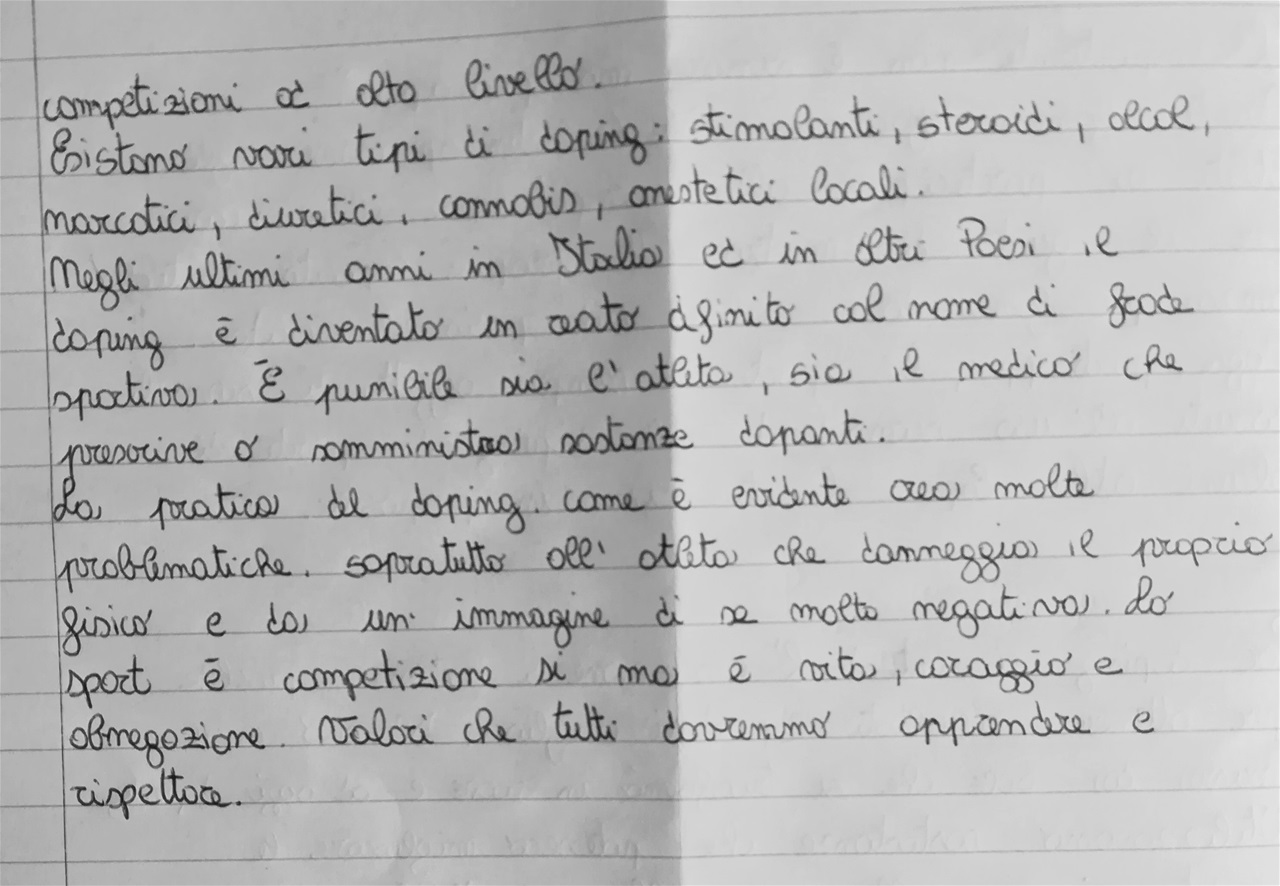 competizioni ad alto livello.
Esistono vari tipi di doping: stimolanti, steroidi, alcol,
narcotici, diuretici, cannabis, anestetici locali.
Negli ultimi anni in Italia ed in altri Paesi il
doping è diventato un reato definito col nome di frode
sportiva. È punibile sia l'atleta, sia il medico che
prescrive o somministra sostanze dopanti.
La pratica del doping. come è evidente crea molte
problematiche. sopratutto all'atleta che danneggia il proprio
fisico e da un'immagine di se molto negativa. Lo
sport è competizione si ma è vita, coraggio e
abnegazione. Valori che tutti dovremmo apprendere e
rispettare.